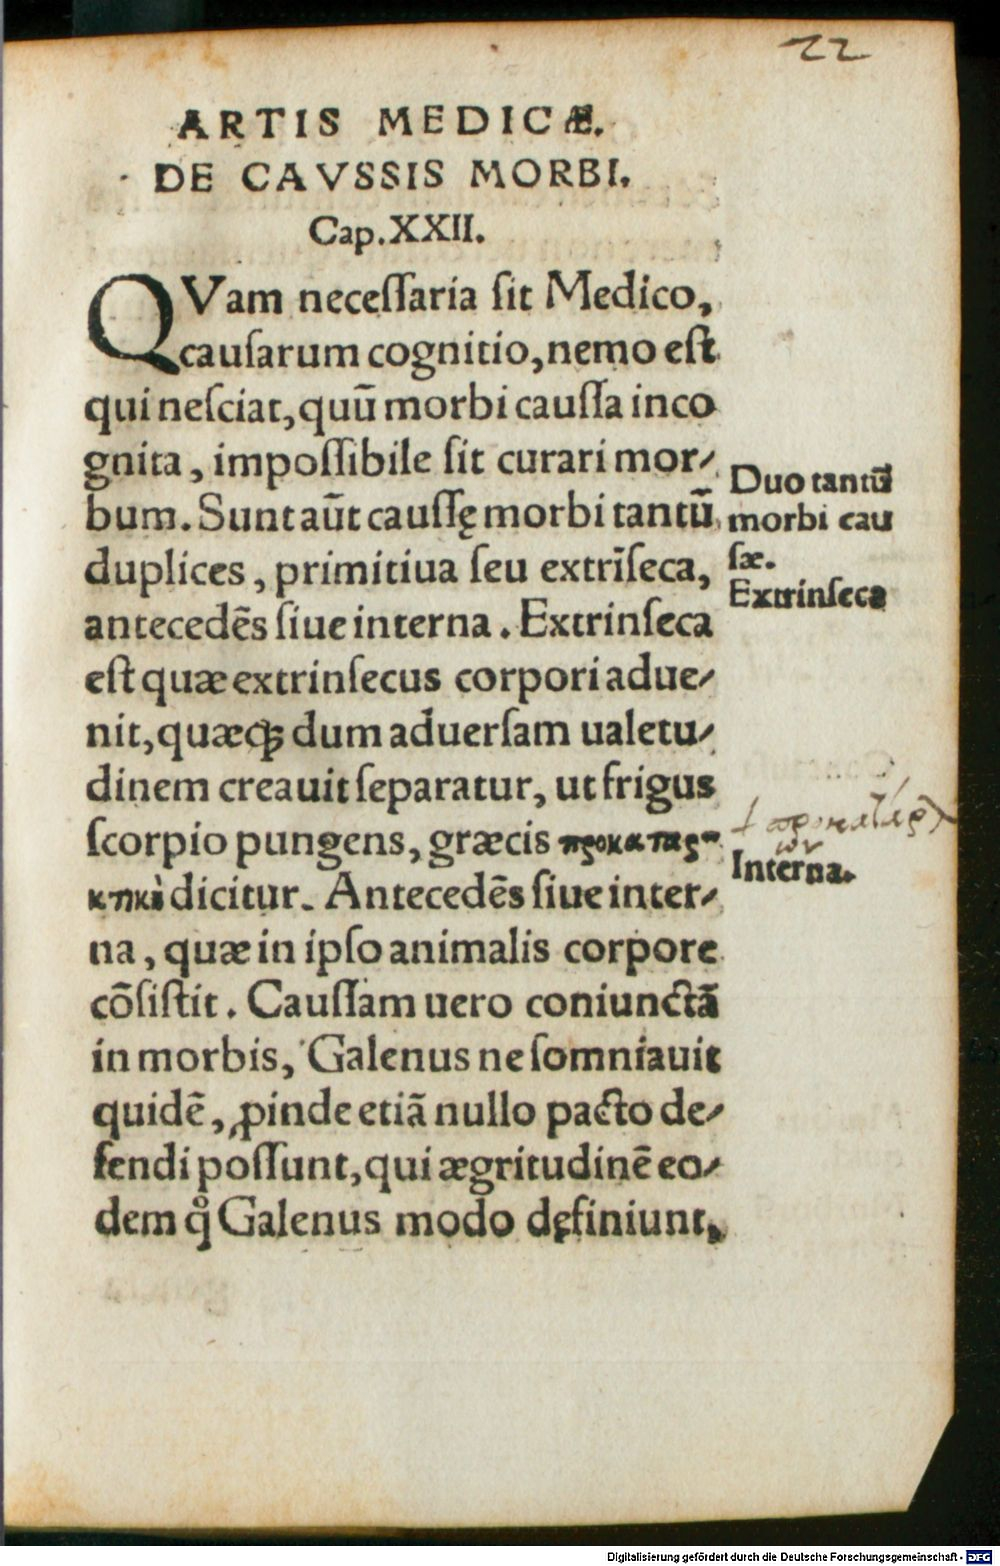 22
ARTIS MEDICÆ.
DE CAVSSIS MORBI.
Cap.XXII.
QVam neceſſaria ſit Medico,
cauſarum cognitio, nemo eſt
qui neſciat, quũ morbi cauſſa inco
gnita, impoſſibile ſit curari mor-
bum. Sunt aũt cauſſę morbi tantũ
duplices, primitiua ſeu extrĩſeca,
antecedẽs ſiue interna. Extrinſeca
eſt quæ extrinſecus corpori adue-
nit, quæꝗ; dum aduerſam ualetu-
dinem creauit ſeparatur, ut frigus
ſcorpio pungens, græcis προκαταρ-
κτικὴ dicitur. Antecedẽs ſiue inter-
na, quæ in ipſo animalis corpore
cõſiſtit. Cauſſam uero coniunctã
in morbis, Galenus ne ſomniauit
quidẽ, ꝓinde etiã nullo pacto de-
fendi poſſunt, qui ægritudinẽ eo-
dem q̊ Galenus modo dęfiniunt,
Duo tantũ
morbi cau
ſæ.
Extrinſeca
Interna.
Digitalisierung gefördert durch die Deutsche Forschungsgemeinschaft - DFG